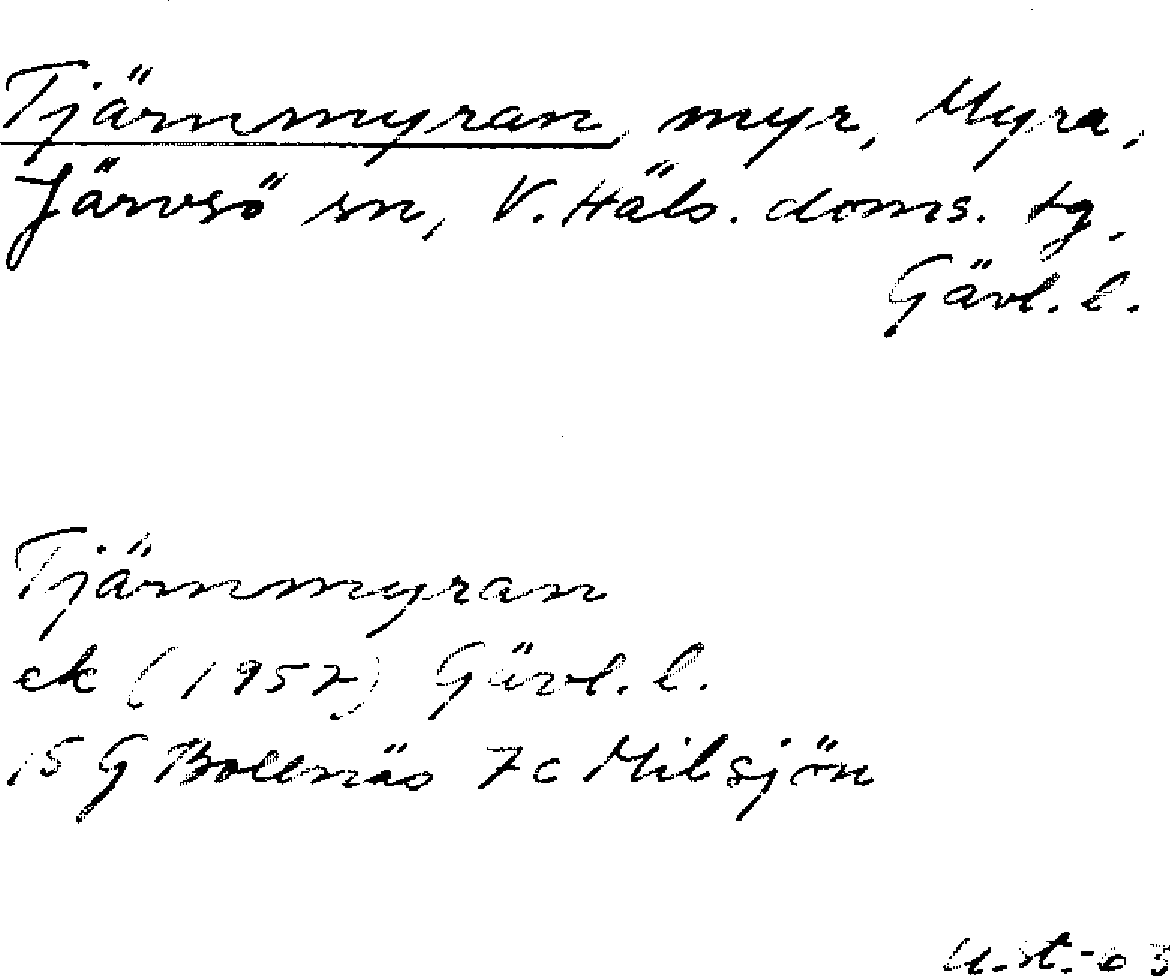 Tjärnmyran, myr, Myra,
Järvsö sn, V. Häls. doms. tg.
Gävl. l.
Tjärnmyran
ek (1957) Gävl. l.
15 G Bollnäs 7c Milsjön
U.St.-63